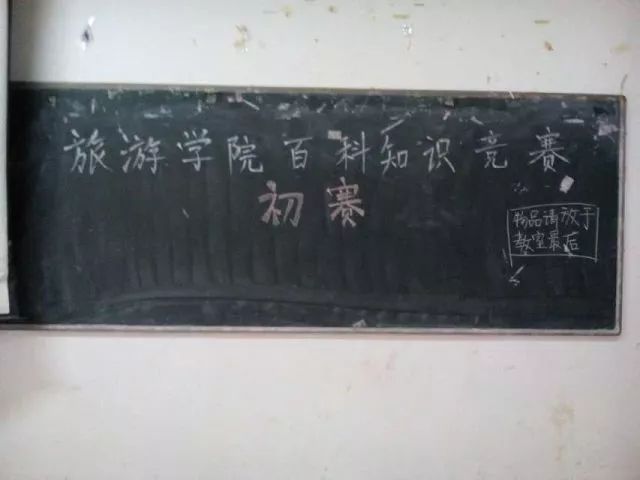 旅游学院百科知识竞赛
初赛
物品请放于
教室最后